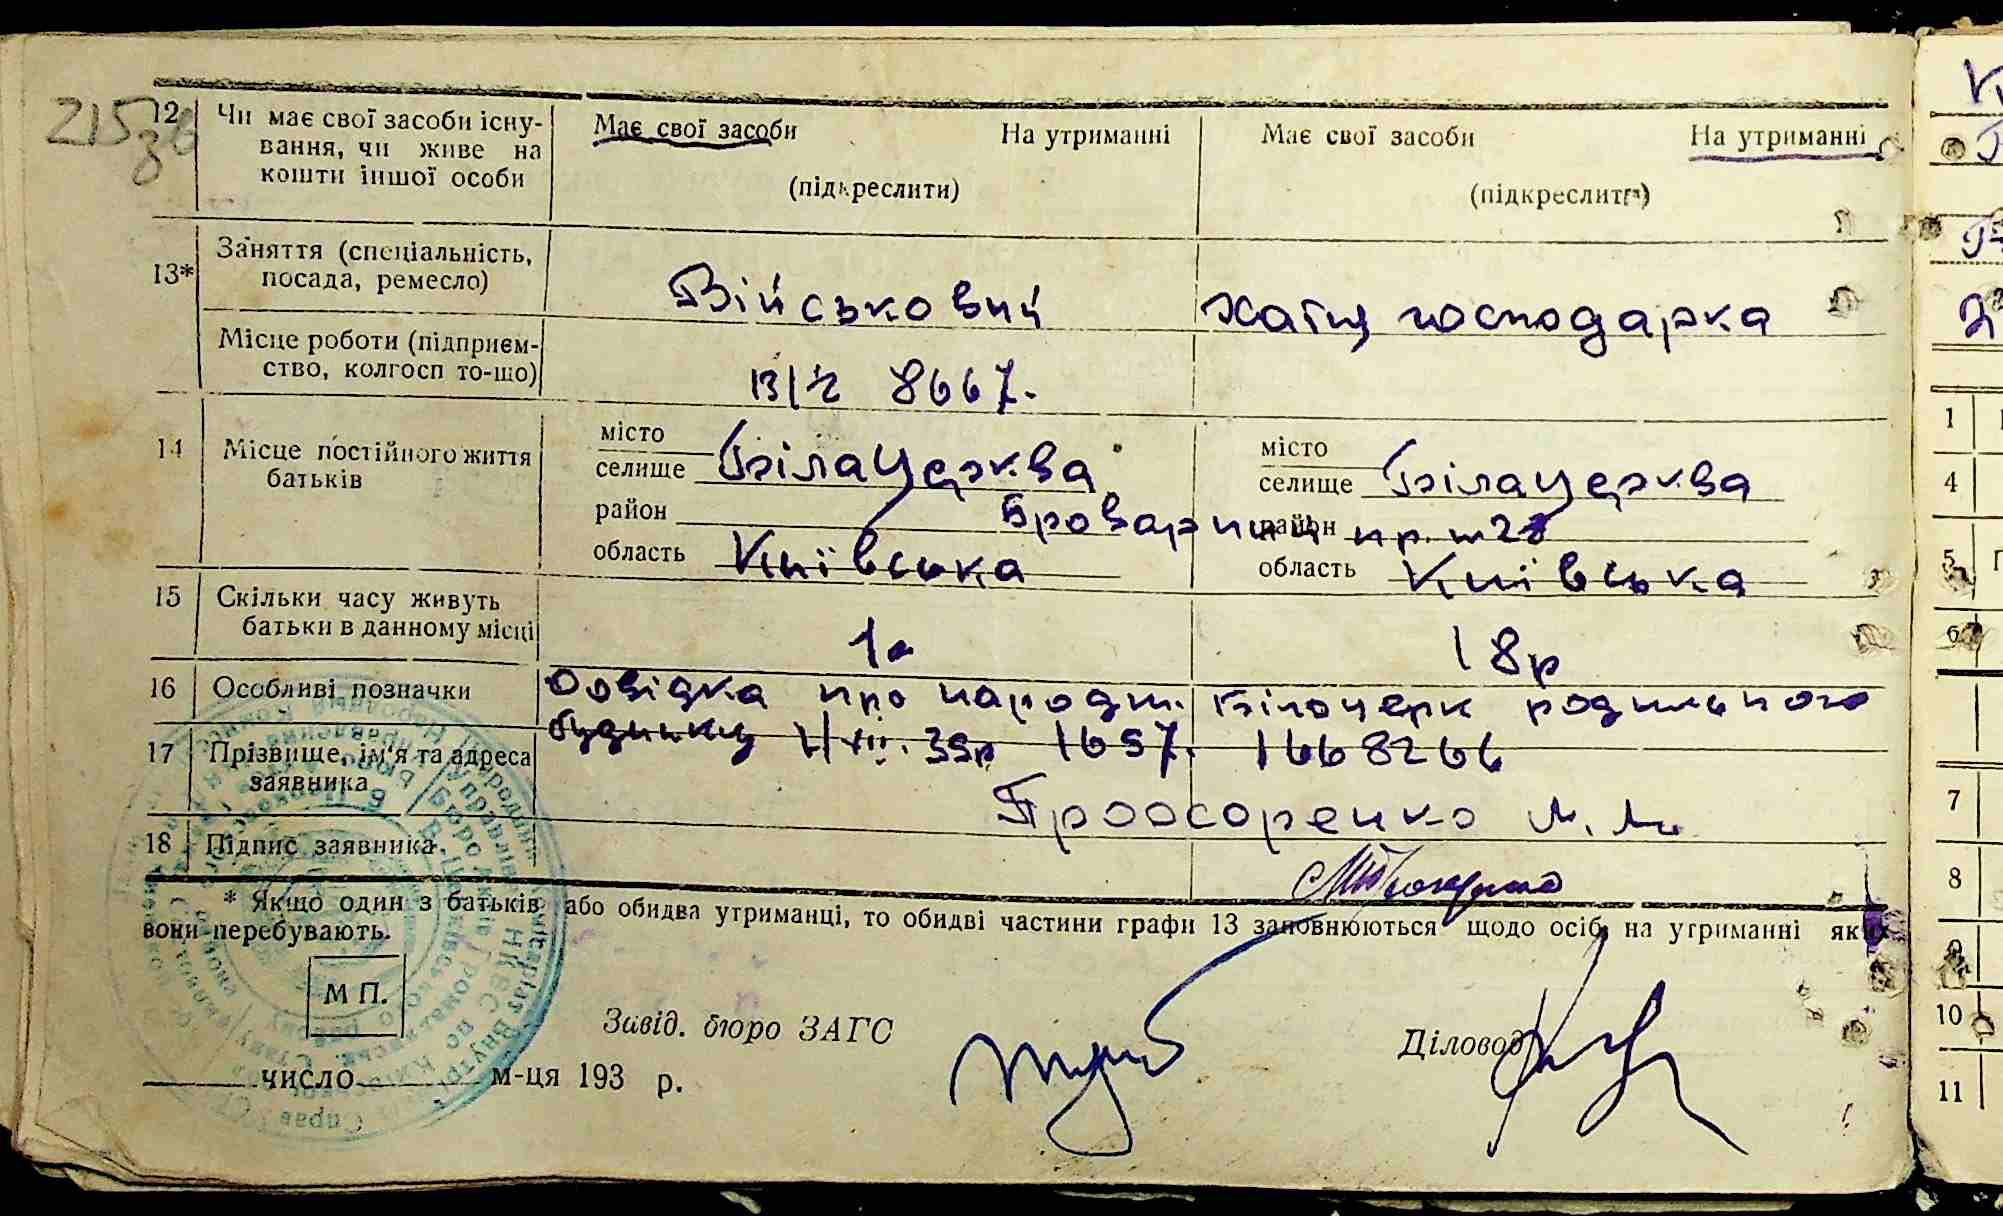 215 зв
12 Чи має свої засоби існу- Має свої засоби На утриманні Має свої засоби На утриманні
вання, чи живе на
кошти іншої особи (підкреслити) (підкреслити)
13* Заняття (спеціальність,
посада, ремесло) Військовий Хатн господарка
Місце роботи (підприєм-
ство, колгосп то-що) В/ч 8667.
14 Місце постійного життя
батьків
місто місто
селище Біла Церква селище Біла Церква
район район
Броварний пр. 
область Київська область Київська
15 Скільки часу живуть
батьки в данному місці 1р 18р
16 Особливі позначки Довідка про народж. Білоцерк родильного
будинку XII. 39р 1657. 1668266
17 Прізвище, ім'я та адреса
заявника М. М.
18 Підпис заявника.
* Якщо один з батьків або обидва утриманці, то обидві частини графи 13 заповнюються щодо осіб, на утриманні яких
вони перебувають.
М П.
Завід. бюро ЗАГС Діловод
число м-ця 193 р.
1
4
5
6
7
8
9
10
11